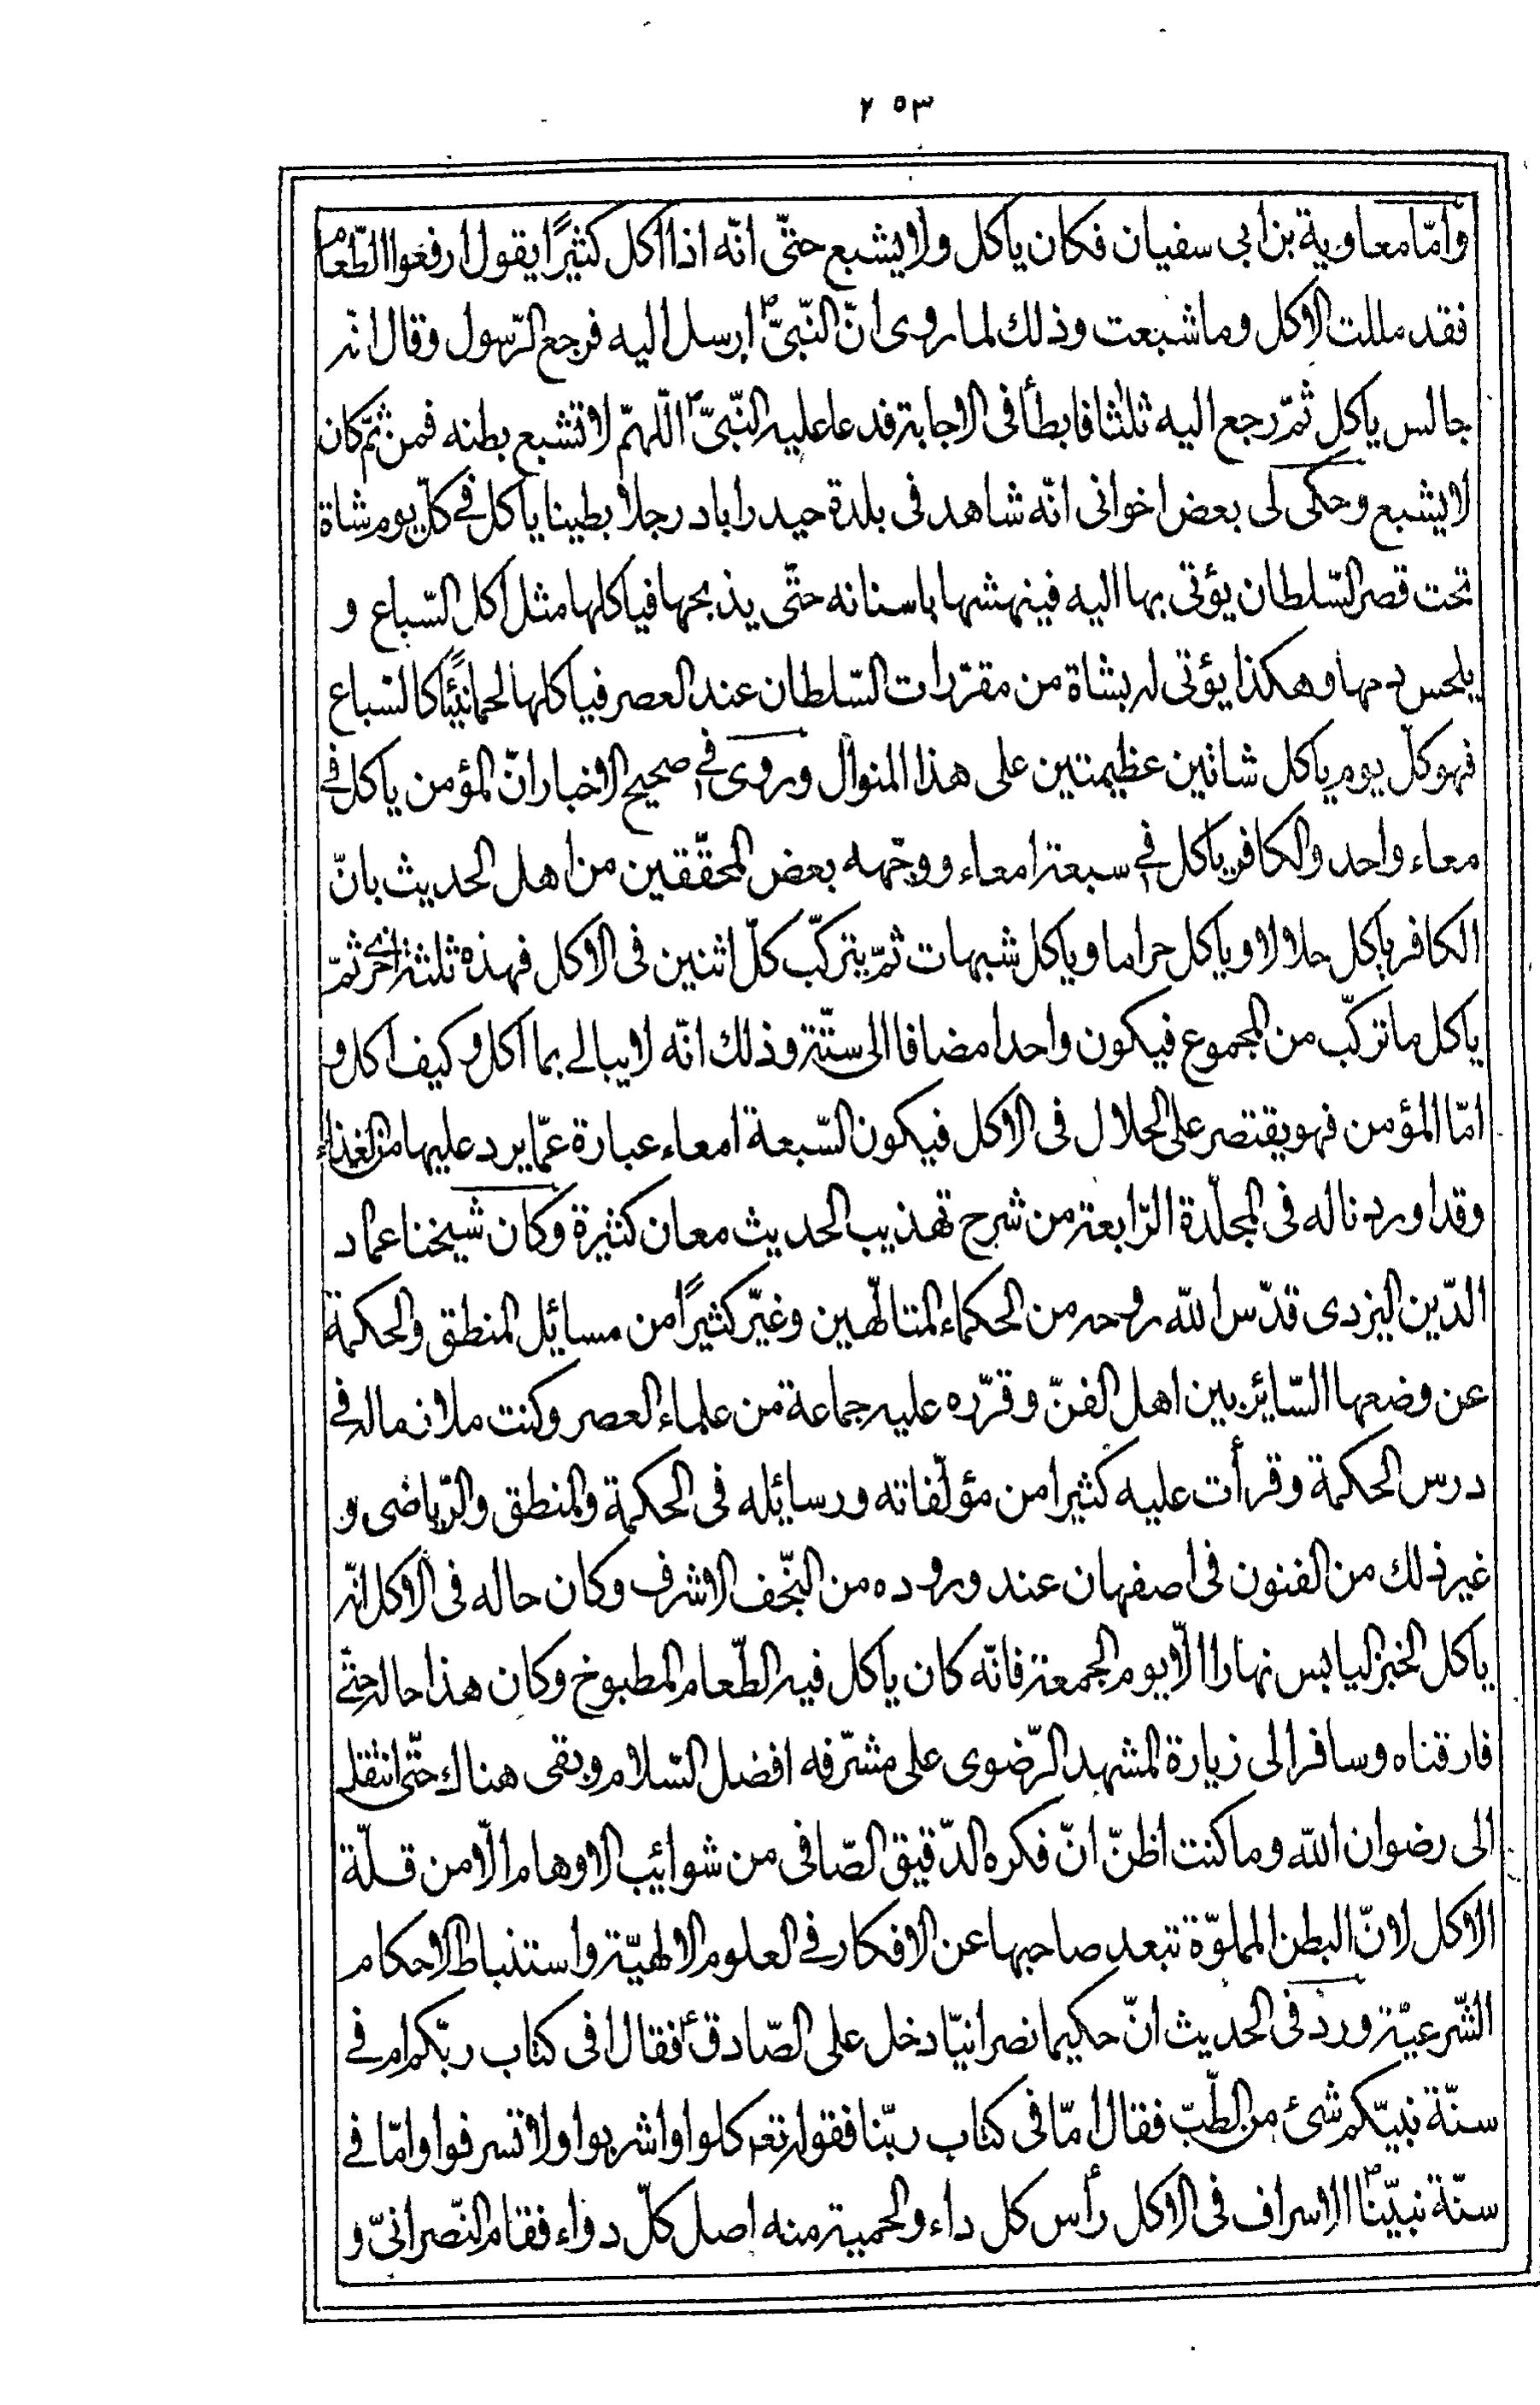 ٢٥٣
وامّا معاوية بن ابى سفيان فكان ياكل ولا يشبع حتّى انّه اذا اكل كثيرًا يقول ارفعوا الطّعام
فقد مللت الاكل وما شبعت وذلك لما روى انّ النّبىّ ص ارسل اليه فرجع الرّسول وقال انّه
جالس ياكل ثمّ رجع اليه ثلثا فابطأ فى الاجابة فدعا عليه النّبىّ ص اللّهمّ لا تشبع بطنه فمن ثمّ كان
لا يشبع وحكى لى بعض اخوانى انّه شاهد فى بلدة حيدراباد رجلا بطينا ياكل فى كلّ يوم شاة
تحت قصر السّلطان يؤتى بها اليه فينهشها باسنانه حتّى يذبحها فياكلها مثل اكل السّباع و
يلحس دمها وهكذا يؤتى له بشاة من مقرّرات السّلطان عند العصر فياكلها لحما نيًّا كالسّباع
فهو كلّ يوم ياكل شاتين عظيمتين على هذا المنوال وروى فى صحيح الاخبار انّ المؤمن ياكل فى
معاء واحد والكافر ياكل فى سبعة امعاء ووجّهه بعض المحقّقين من اهل الحديث بانّ
الكافر ياكل حلالا وياكل حراما وياكل شبهات ثمّ يتركّب كلّ اثنين فى الاكل فهذه ثلثة اخر ثمّ
ياكل ما تركّب من المجموع فيكون واحدا مضافا الى ستّة وذلك انّه لا يبالى بما اكل وكيف اكل و
امّا المؤمن فهو يقتصر على الحلال فى الاكل فيكون السّبعة امعاء عبارة عمّا يرد عليها من الغذاء
وقد اوردنا له فى المجلّدة الرّابعة من شرح تهذيب الحديث معان كثيرة وكان شيخنا عماد
الدّين اليزدى قدّس الله روحه من الحكماء المتالّهين وغيّر كثيرًا من مسائل المنطق والحكمة
عن وضعها السّاير بين اهل الفنّ وقرّره عليه جماعة من علماء العصر وكنت ملازما له فى
درس الحكمة وقرأت عليه كثيرا من مؤلّفاته ورسائله فى الحكمة والمنطق والرّياضى و
غير ذلك من الفنون فى اصفهان عند وروده من النّجف الاشرف وكان حاله فى الاكل انّه
ياكل الخبز اليابس نهارا الّا يوم الجمعة فانّه كان ياكل فيه الطّعام المطبوخ وكان هذا حاله حتّى
فارقناه وسافر الى زيارة المشهد الرّضوى على مشرّفه افضل السّلام وبقى هناك حتّى انتقل
الى رضوان الله وما كنت اظنّ انّ فكره الدّقيق الصّافى من شوائب الاوهام الّا من قلّة
الاكل لانّ البطن المملوّة تبعد صاحبها عن الافكار فى العلوم الالهيّة واستنباط الاحكام
الشّرعيّة وورد فى الحديث انّ حكيما نصرانيّا دخل على الصّادق ع فقال افى كتاب ربّكم ام فى
سنّة نبيّكم شئ من الطّبّ فقال امّا فى كتاب ربّنا فقوله تعه كلوا واشربوا ولا تسرفوا وامّا فى
سنّة نبيّنا ص الاسراف فى الاكل رأس كل داء والحمية منه اصل كلّ دواء فقام النّصرانىّ و